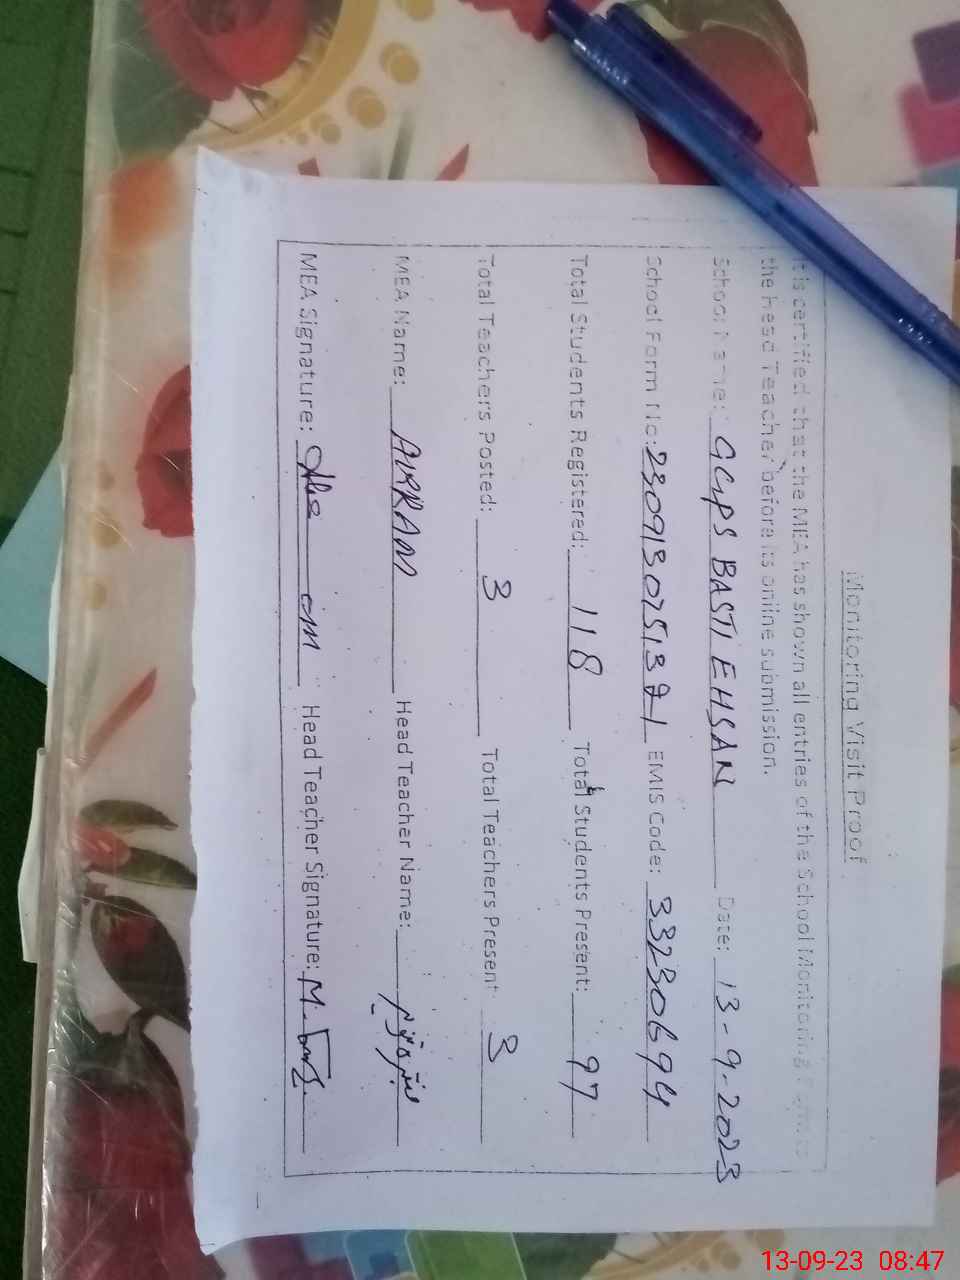 Monitoring Visit Proof
It is certified that the MEA has shown all entries of the School Monitoring Form to
the head Teacher before its online submission.
School Name: GGPS BASTI EHSAN Date: 13-9-2023
School Form No: EMIS Code: 33230694
Total Students Registered: 118 Total Students Present: 97
Total Teachers Posted: 3 Total Teachers Present 3
MEA Name: AKRAM Head Teacher Name:
MEA Signature: Head Teacher Signature:
13-09-23 08:47